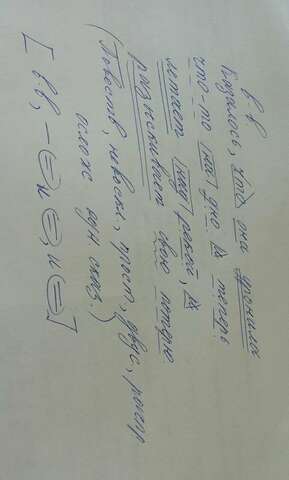 в.в
Казалось, что она уронила
что-то на дно и теперь
летает над рекой, и
разыскивает свою потерю
(Повеств, невоскл, прост, двус, распр
ослож одн сказ.)
[вв, – = и =, и =]